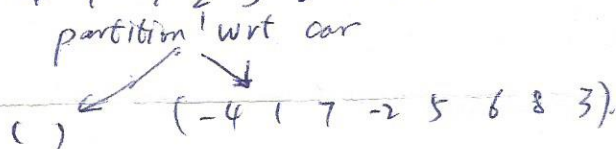 partition wrt car
( ) (-4 1 7 -2 5 6 8 3)